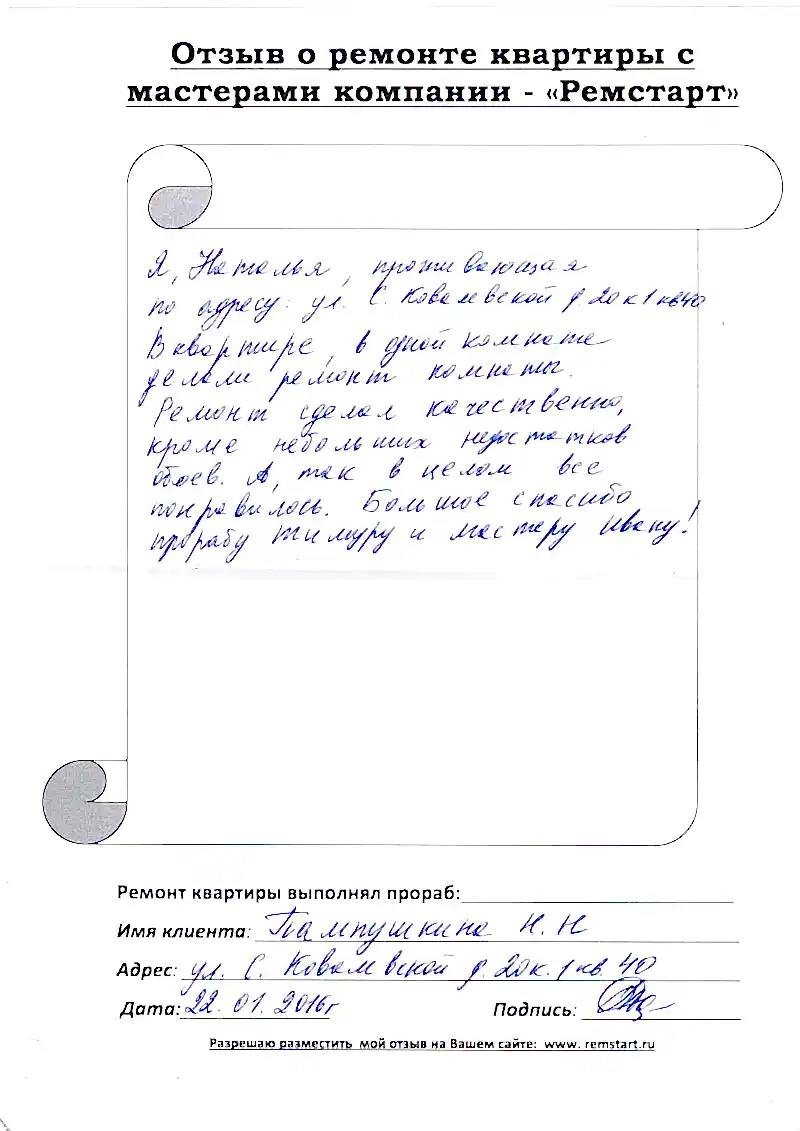 Отзыв о ремонте квартиры с
мастерами компании - «Ремстарт»
Я, Наталья, проживающая
по адресу: ул. С. Ковалевской д 20 к 1 кв 40
В квартире, в одной комнате
делали ремонт комнаты.
Ремонт сделал качественно,
кроме небольших недостатков
обоев. А, так в целом все
понравилось. Большое спасибо
прорабу Тимуру и мастеру Ивану!
Ремонт квартиры выполнял прораб:
Имя клиента: Пампушкина Н. Н
Адрес: ул. С. Ковалевской д. 20 к. 1 кв 40
Дата: 22. 01. 2016г Подпись:
Разрешаю разместить мой отзыв на Вашем сайте: www. remstart.ru